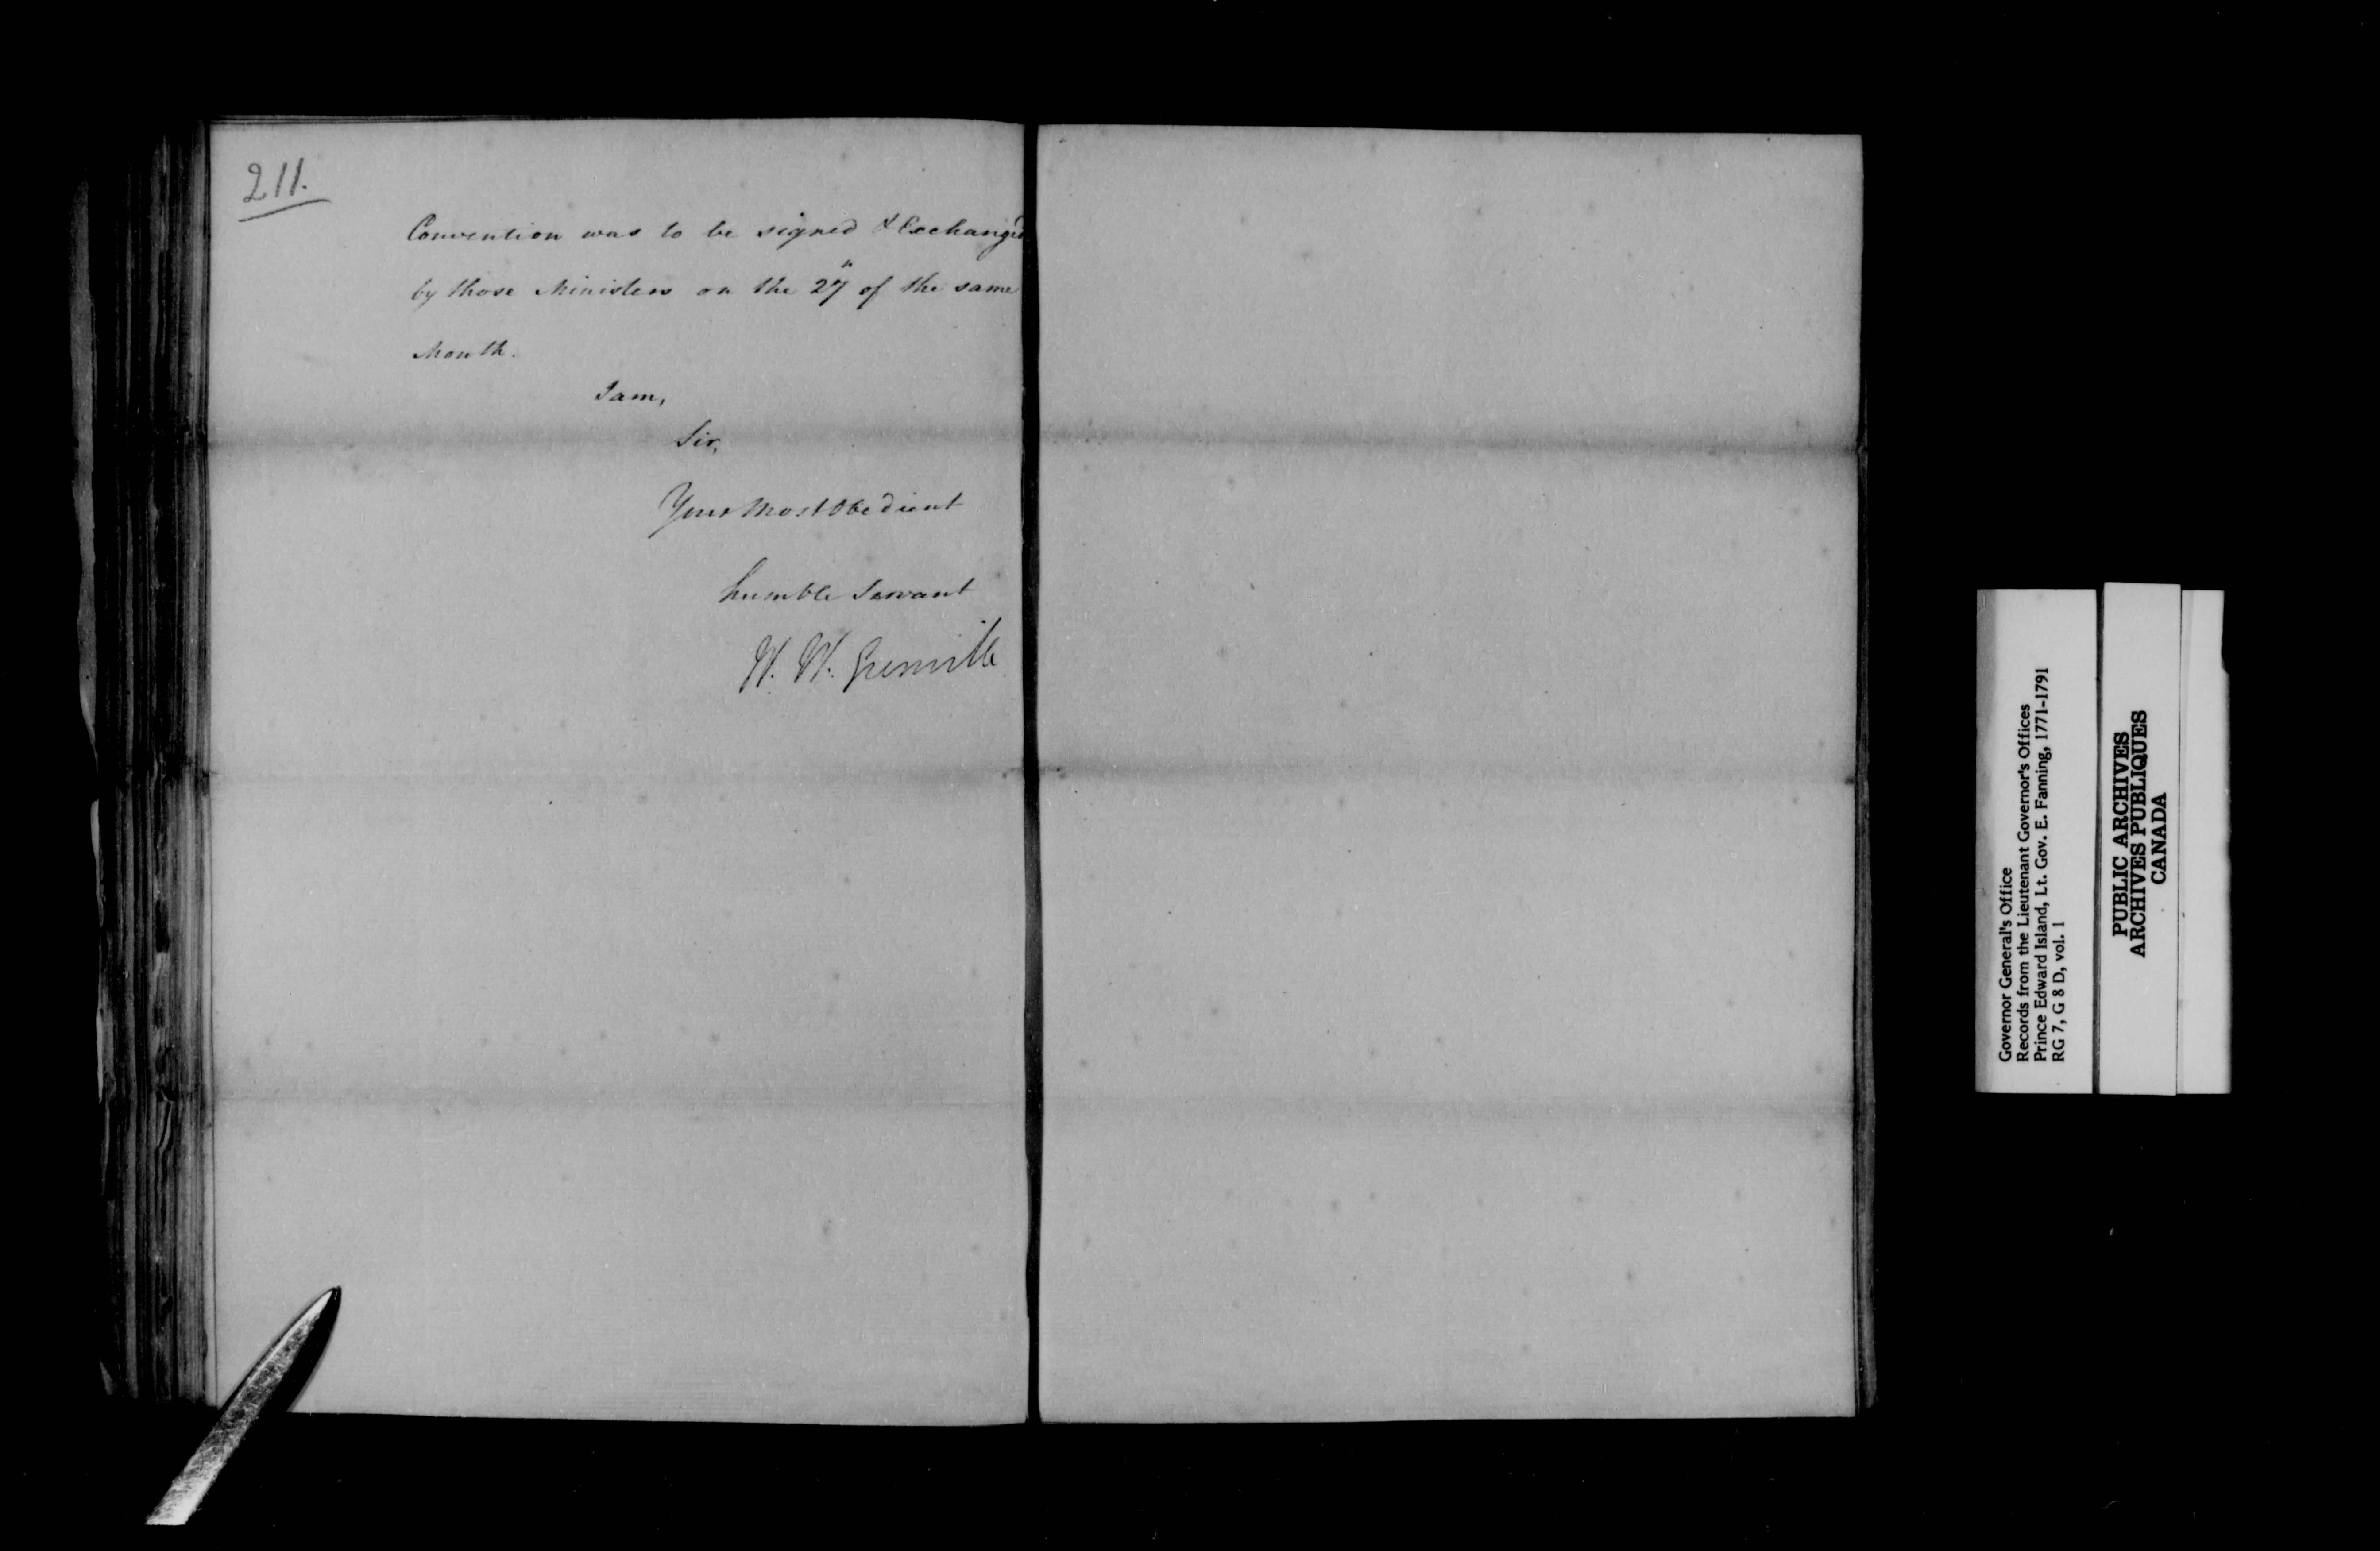 211.
Convention was to be signed & Exchanged
by those Ministers on the 27th of the same
Month.
I am,
Sir,
Your Most Obedient
humble Servant
W. W. Grenville
Governor General's Office
Records from the Lieutenant Governor's Offices
Prince Edward Island, Lt. Gov. E. Fanning, 1771-1791
RG 7, G 8 D, vol. 1
PUBLIC ARCHIVES
ARCHIVES PUBLIQUES
CANADA